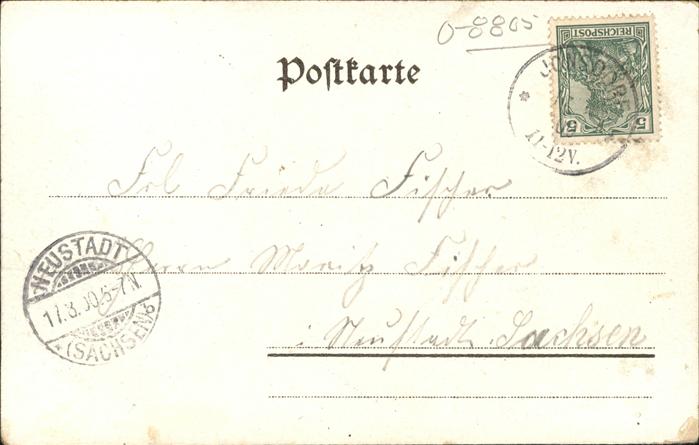 0-8805
REICHSPOST
5 5
JONSDORF
11-12V.
Postkarte
Frl Frieda Fischer
Herrn Moritz Fischer
i Neustadt. Sachsen
NEUSTADT
17.3.00.6-7N.
*(SACHSEN)b